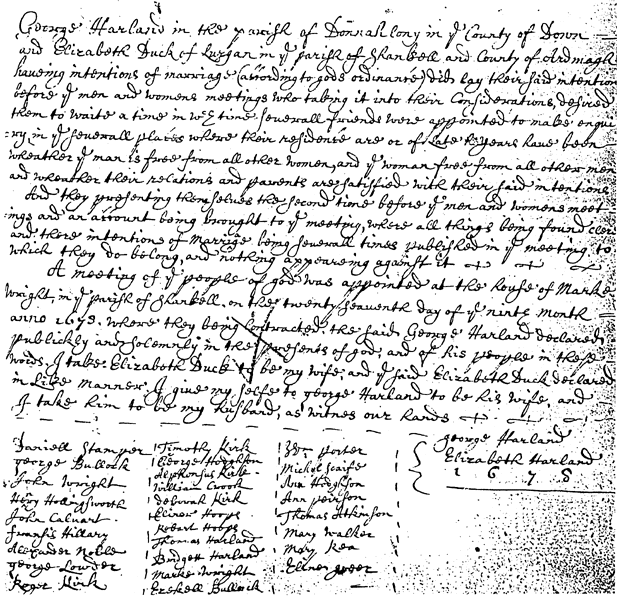 George Harland in the parish of Donnahlony in ye County of Down
and Elizabeth Duck of Lurgan in ye parish of Shankell and County of Ardmagh
haueing intentions of marriage (according to gods ordinance) did lay their said intention
before ye men and womens meetings who taking it into their Considerations, desired
them to waite a time in wch time seuerall friends were appointed to make enqui
=ry in ye seuerall places where their residence are or of Late years haue been
wheather ye man is free from all other women, and ye woman free from all other men
and wheather their relations and parents are satisfied with their said intentions
And they presenting themselues the second time before ye men and womens meet
ings and an account being brought to ye meeting, where all things being found cler
and there intentions of Marrige being seuerall times published in ye meeting to
which they do belong, and nothing appeareing against it
A meeting of ye people of god was appointed at the house of Marke
Wright, in ye parish of Shankell, on the twenty seauenth day of ye ninth month
anno 1678, where they being contracted, the said George Harland declared,
publickly and solemnly in the presents of god, and of his people in these
words. I take Elizabeth Duck to be my wife, and ye said Elizabeth Duck declared
in Like manner I giue my selfe to george Harland to be his wife, and
I take him to be my husband, as witnes our hands
george Harland
Elizabeth Harland
1 6 7 8
Daniell Stamper
george Bullock
John Wright
Henry Hollingsworth
John Caluart
Francis Hillary
Alexander Noble
george Lowder
Roger Kirk
Timothy Kirk
George Hodgshon
Alphonsus Kirk
William Crook
deborah Kirk
Eliner Hoops
Robert Hoops
Thomas Harland
Bridgett Harland
Marke Wright
Ezekell Bullock
Wm porter
Michol Scaife
Ann Hodgshon
Ann peirson
Thomas Atkinson
Mary Walker
Mary Rea
Eliner greer